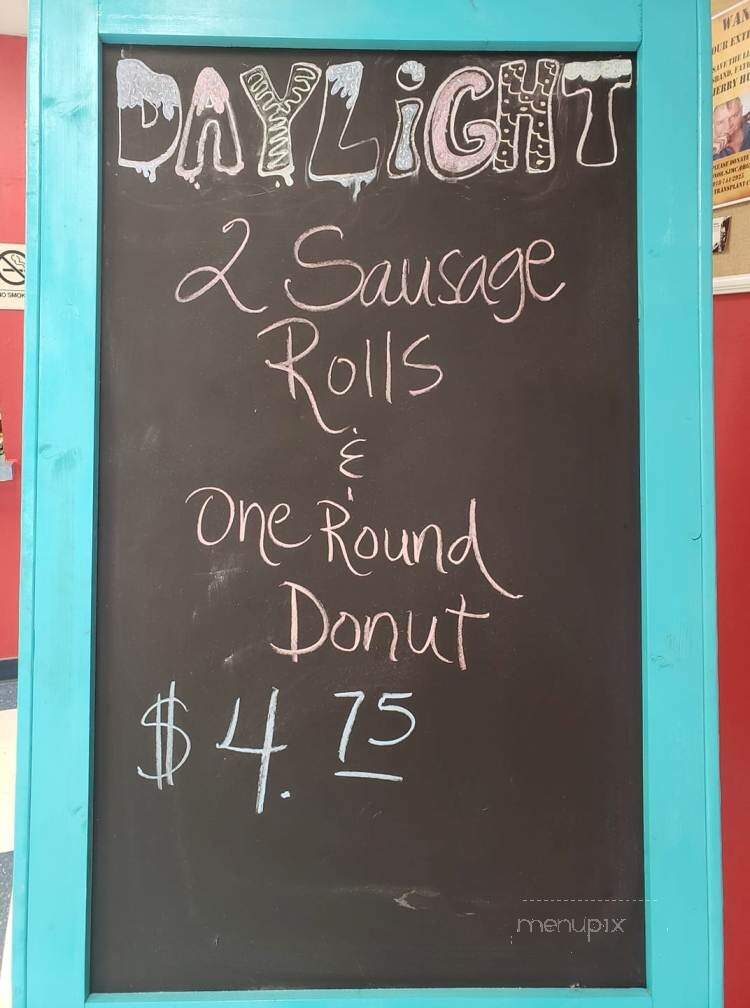 DAYLIGHT
2 Sausage
Rolls
&
One Round
Donut
$4.75
NO SMOK
WAN
OUR EXT
SAVE THE L
BAND, FATH
JERRY H
PLEASE DONATE
TRANSPLANT C
menupix